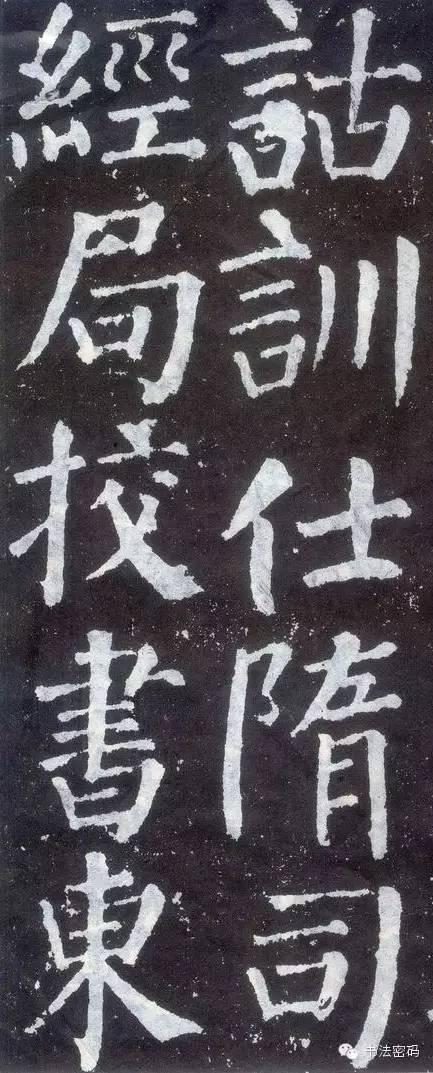 詁訓仕隋司
經局挍書東
书法密码